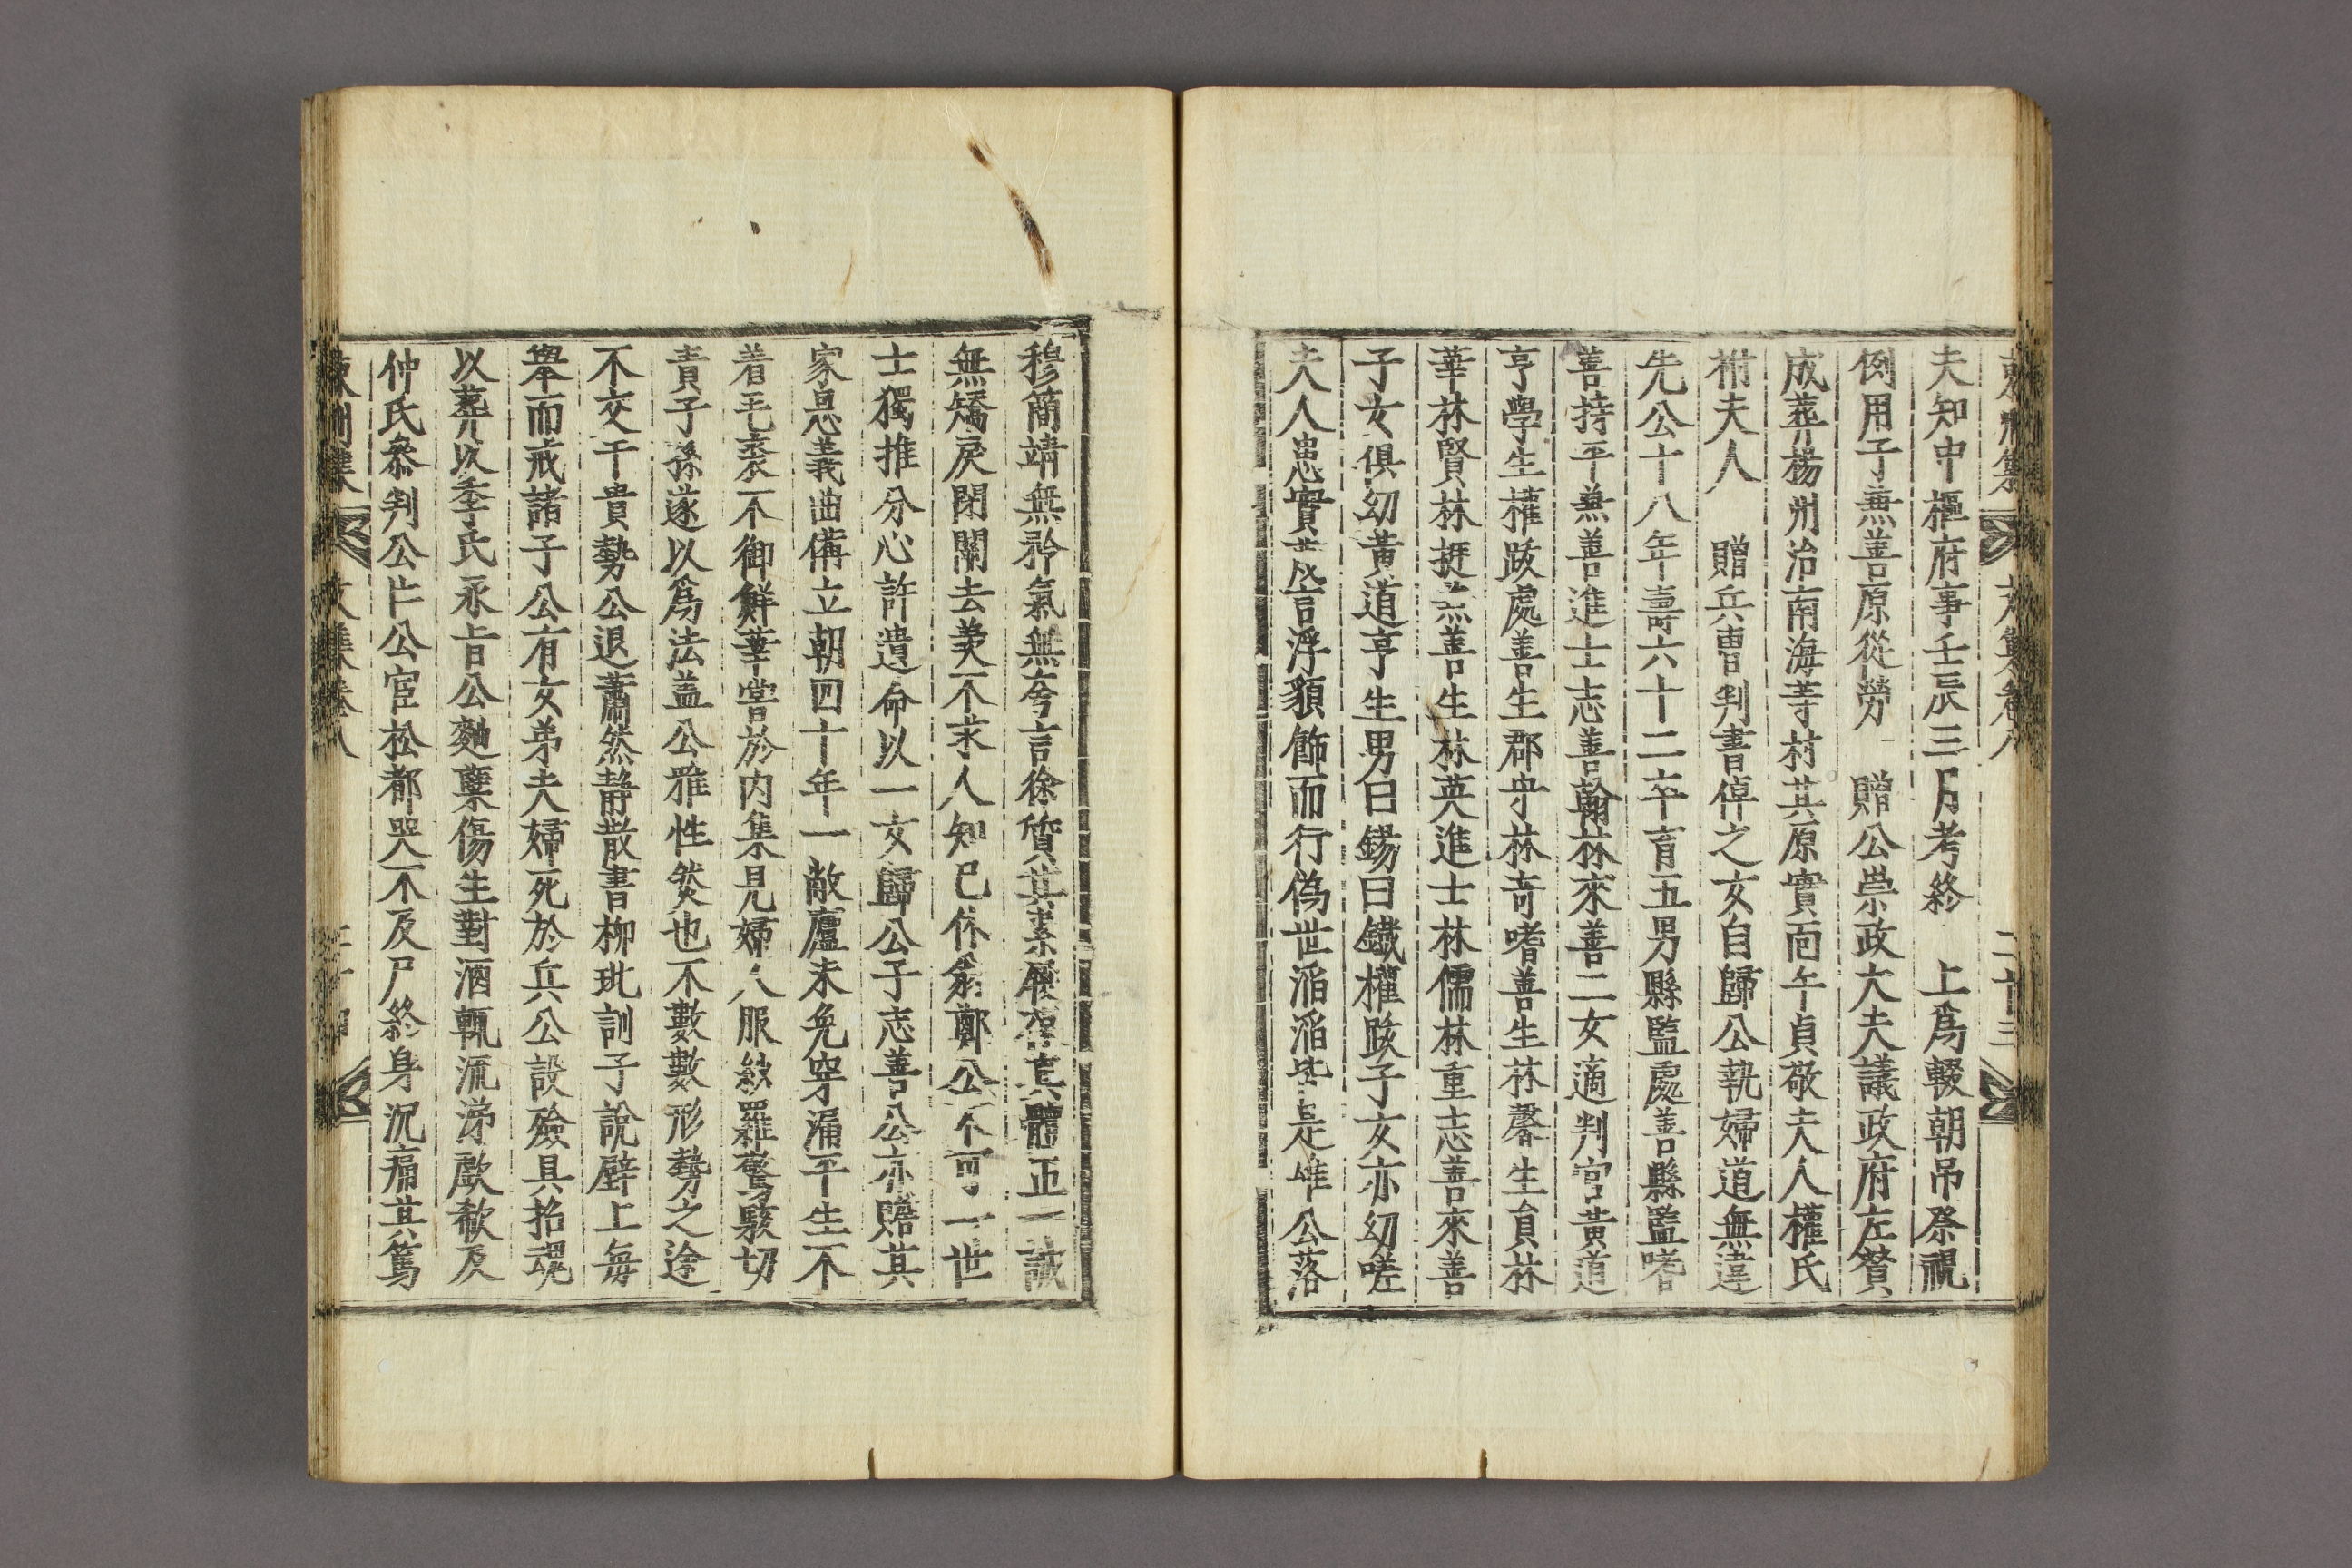 夫知中樞府事壬辰三月考終 上爲輟朝吊祭視
例用子無善原從勞 贈公崇政大夫議政府左贊
成葬楊州治南海等村其原實面午貞敬夫人權氏
祔夫人 贈兵曹判書倬之女自歸公執婦道無違
先公十八年壽六十二卒育五男縣監處善縣監嗜
善持平無善進士志善翰林來善二女適判官黃道
亨學生權跂處善生郡守林奇嗜善生林馨生員林
華林賢林挺無善生林英進士林儒林重志善來善
子女俱幼黃道亨生男曰錫曰鐵權跂子女亦幼嗟
夫人患實言浮貌飾而行僞世滔滔皆是唯公落
穆簡靖無矜氣無夸言徐質其素履存眞體正一誠
無矯戾閉關去羡不求人知已休翁鄭公不可一世
士獨推分心許遺命以一女歸公子志善公亦贍其
家恩義曲備立朝四十年一敝廬未免穿漏平生不
着毛裘不御鮮華嘗於內集見婦人服紈羅驚駭切
責子孫遂以爲法盖公雅性然也不數數形勢之途
不交干貴勢公退蕭然靜散書柳玭訓子說壁上每
擧而戒諸子公有女弟夫婦死於兵公設殮具招魂
以葬以季氏承旨公麴蘖傷生對酒輒流涕歔欷及
仲氏叅判公片公宦松都哭不及尸終身沉痛其篤
文集卷八